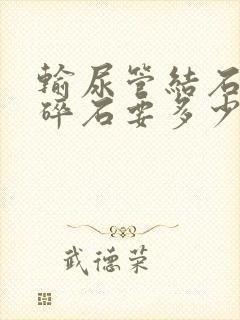 輸尿管結石
碎石要多少
武德荣